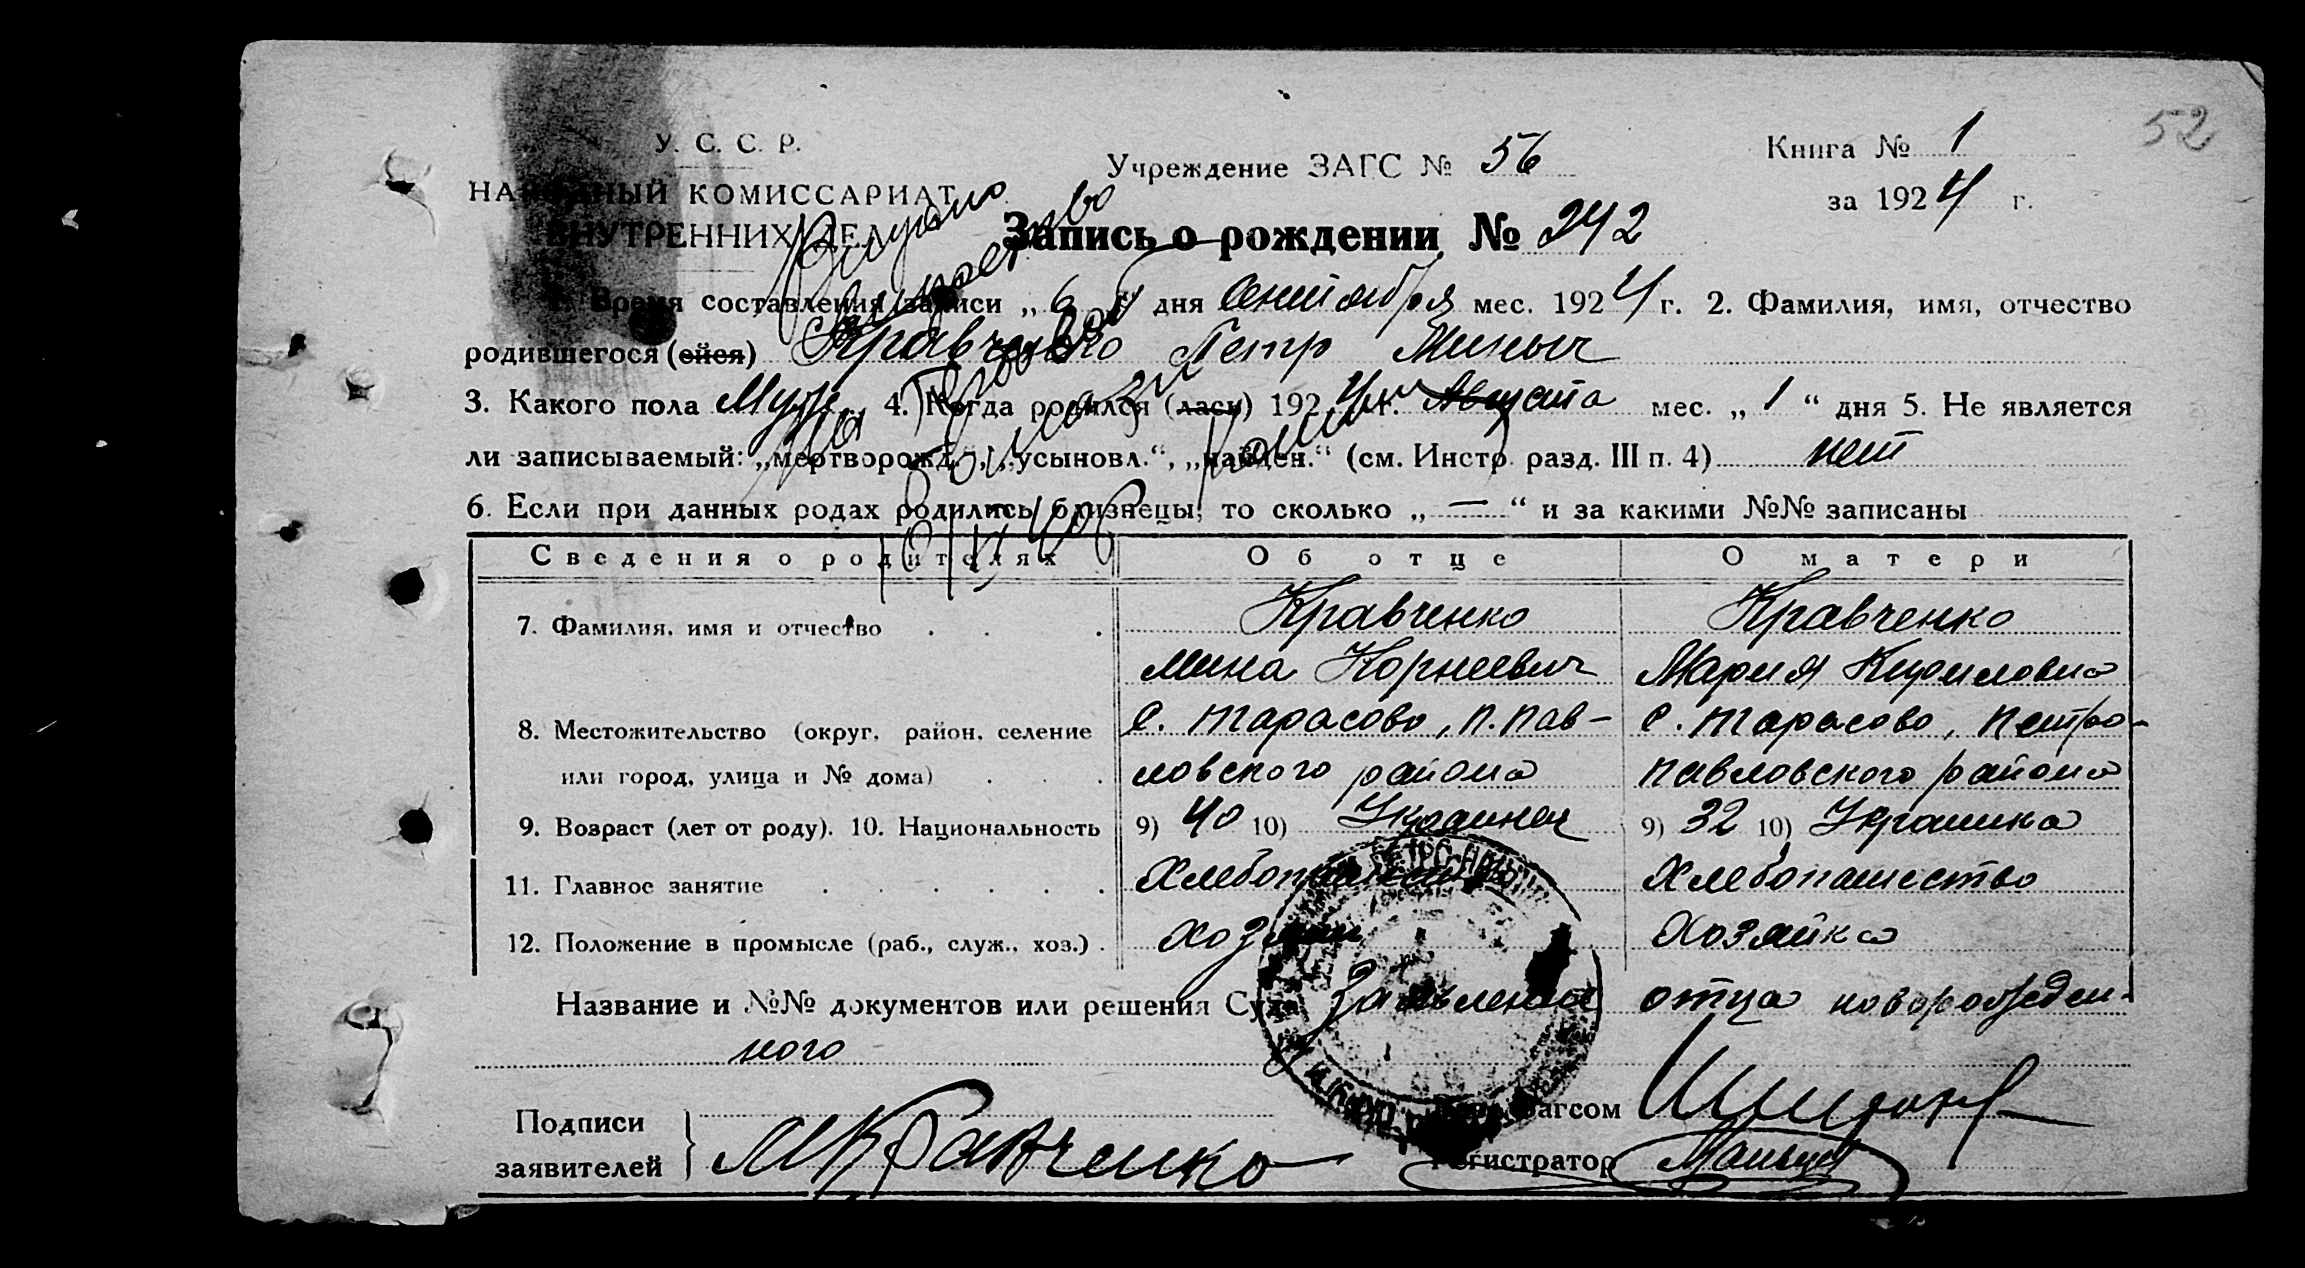 52
У. С. С. Р.
НАРОДНЫЙ КОМИССАРИАТ
ВНУТРЕННИХ ДЕЛ
Учреждение ЗАГС № 56
Книга № 1
за 1924 г.
Запись о рождении № 242
1. Время составления записи „ 6 “ дня Сентября мес. 1924 г. 2. Фамилия, имя, отчество
родившегося (ейся) Кравченко Петр Миныч
3. Какого пола Муж. 4. Когда родился (лась) 1924 г. Августа мес. „ 1 “ дня 5. Не является
ли записываемый: „мертворожд.“, „усыновл.“, „найден.“ (см. Инстр. разд. III п. 4) нет
6. Если при данных родах родились близнецы, то сколько „ — “ и за какими №№ записаны
Сведения о родителях Об отце О матери
7. Фамилия, имя и отчество Кравченко Кравченко
Мина Корнеевич Мария Кириловна
8. Местожительство (округ, район, селение с. Тарасово, П.Пав- с. Тарасово, Петро-
или город, улица и № дома) ловского района павловского района
9. Возраст (лет от роду). 10. Национальность 9) 40 10) Украинец 9) 32 10) Украинка
11. Главное занятие Хлебопашество Хлебопашество
12. Положение в промысле (раб., служ., хоз.) Хозяин Хозяйка
Название и №№ документов или решения Суда Заявление отца новорожден-
ного
Подписи
заявителей
МКравченко
Загсом
Регистратор